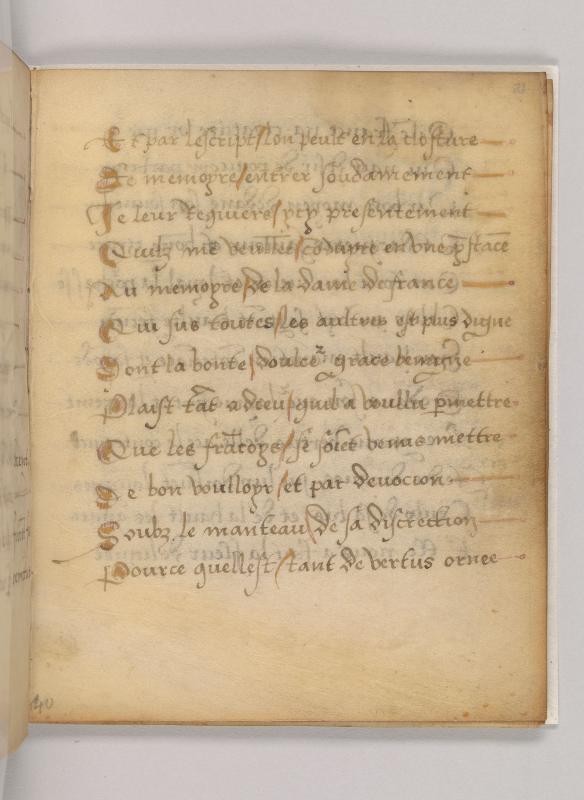 Et par lescript / lon peult en la closture
De memoyre / entrer soudainement
Je leur requiers / ycy presentement
Quilz me veullet / coduyre en vne p̄stāce
Au memoyre / de la dame de france
Qui sus toutes / les aultres est plus digne
Dont la bonte / doulce^z grace benigne
Plaist tāt a dieu / quil a voullu p̄mettre
Que les frācoys / se soiēt venus mettre
De bon voulloyr / et par deuocion
Soubz le manteau / de sa discrection
Pource quellest / tant de vertus ornee